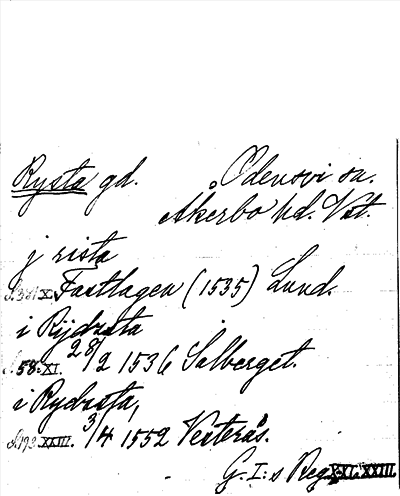 Rysta gd. Odensvi sn.
Åkerbo hd. Vst.
j rista
S.381.X. Fastlagen (1535) Lund.
i Rijdzsta
S.58.XI. 28/2 1536 Salberget.
i Rydzsta,
S.193.XXIII. 3/4 1552 Vesterås.
G.I:s Reg. X-XI. XXIII.